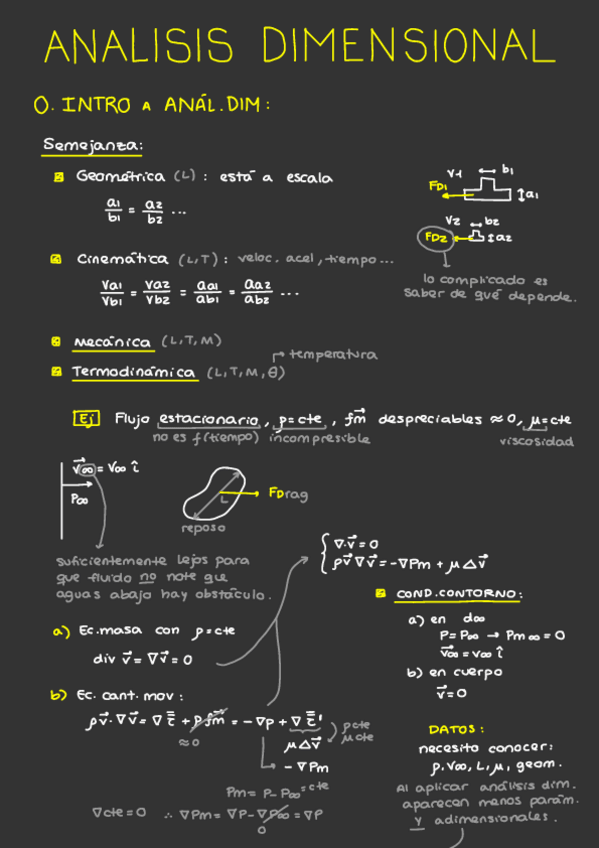 ANALISIS DIMENSIONAL
0. INTRO A ANÁL.DIM:
Semejanza:
Geométrica (L): está a escala
a1/b1 = a2/b2 ...
V1 b1
FD1 a1
V2 b2
FD2 a2
lo complicado es
saber de qué depende.
Cinemática (L,T): veloc. acel, tiempo...
Va1/Vb1 = Va2/Vb2 = aa1/ab1 = aa2/ab2 ...
Mecánica (L,T,M)
temperatura
Termodinámica (L,T,M,θ)
Ej Flujo estacionario, ρ=cte, fm⃗ despreciables ≈0, μ=cte
no es f(tiempo) incompresible viscosidad
v⃗∞ = V∞ î
P∞
L
FDrag
reposo
suficientemente lejos para
que fluido no note que
aguas abajo hay obstáculo.
∇·v⃗=0
ρv⃗∇v⃗=-∇Pm + μΔv⃗
COND.CONTORNO:
a) en d∞
P=P∞ → Pm∞=0
v⃗∞=V∞ î
b) en cuerpo
v⃗=0
a) Ec.masa con ρ=cte
div v⃗ = ∇v⃗ = 0
b) Ec. cant. mov:
ρv⃗·∇v⃗ = ∇τ̿ + ρfm⃗ = -∇p + ∇τ̿'
≈0
ρcte
μcte
μΔv⃗
-∇Pm
Pm = P - P∞ =cte
∇cte=0 ∴ ∇Pm = ∇P - ∇P∞ = ∇P
0
DATOS:
necesito conocer:
ρ, V∞, L, μ, geom.
Al aplicar análisis dim.
aparecen menos parám.
y adimensionales.